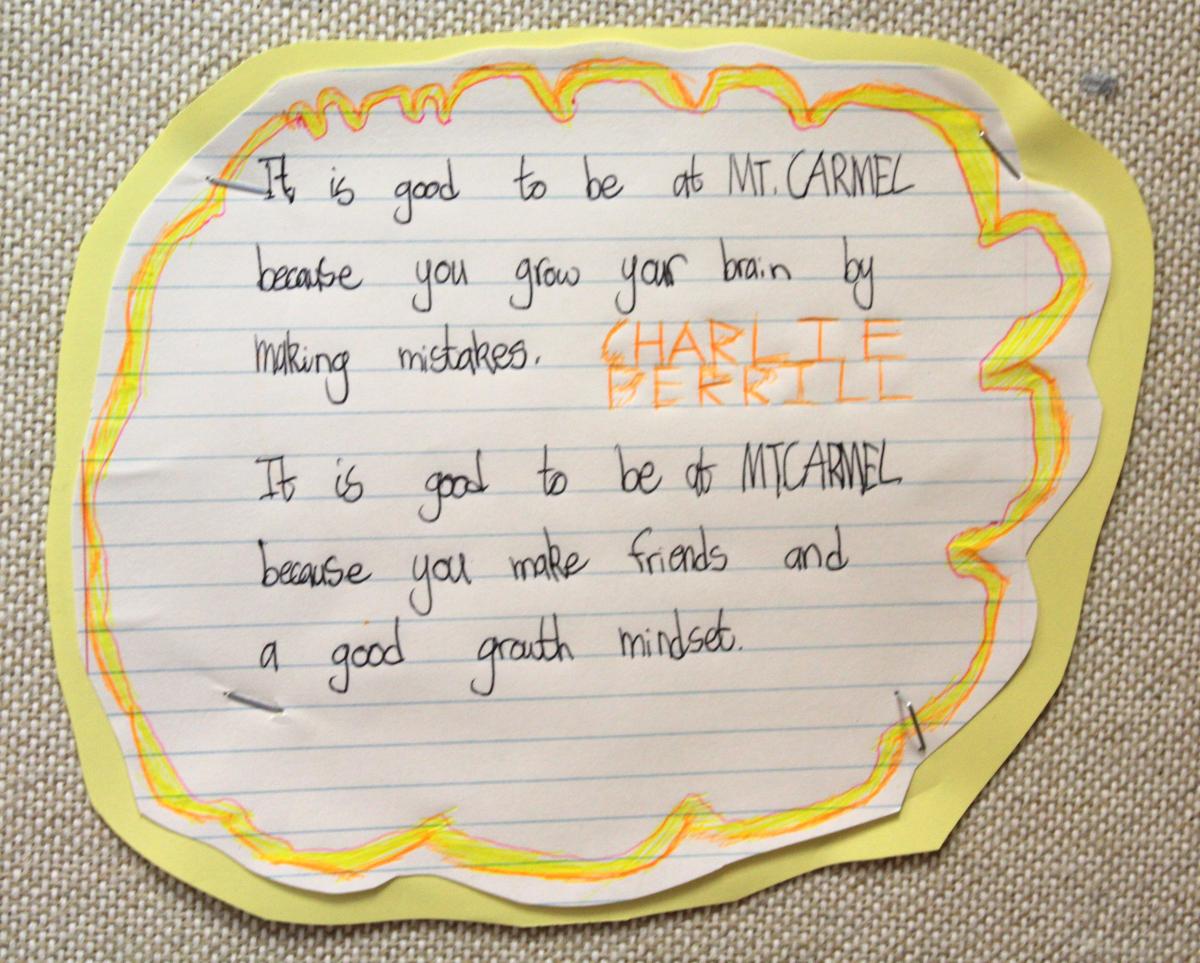 It is good to be at MT. CARMEL
because you grow your brain by
making mistakes. CHARLIE
BERRILL
It is good to be at MTCARMEL
because you make friends and
a good grouth mindset.